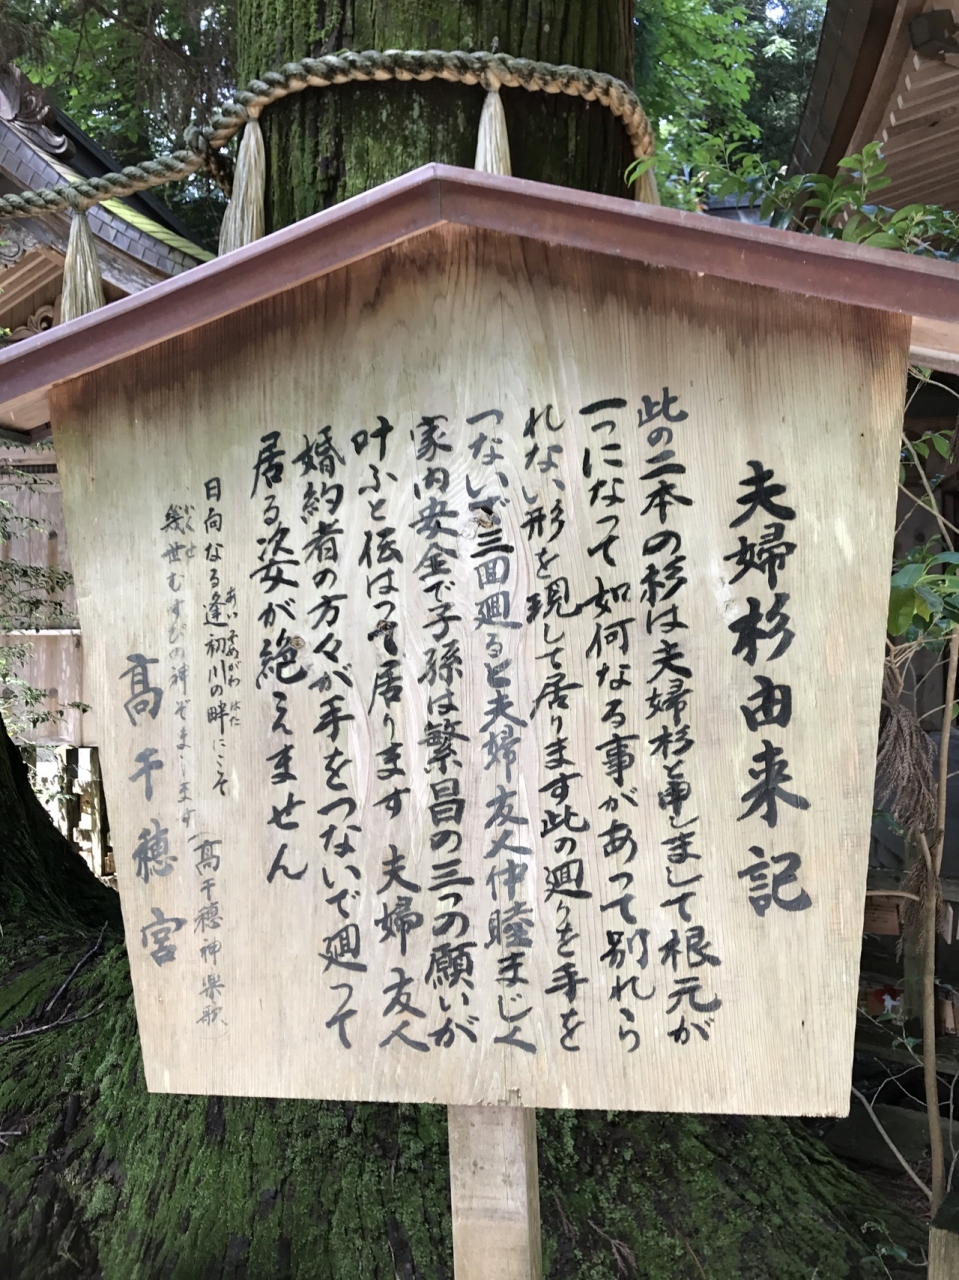 夫婦杉由来記
此の二本の杉は夫婦杉と申しまして根元が
一つになって如何なる事があって別れら
れない形を現して居ります此の廻りを手を
つないで三回廻ると夫婦友人仲睦まじく
家内安全で子孫は繁昌の三つの願いが
叶ふと伝はって居ります 夫婦 友人
婚約者の方々が手をつないで廻って
居る次女が絶えません
日向なる逢初川の畔にこそ
あいそめがわ はた
幾世むすびの神ぞまします(高千穂神楽歌)
いくせ
高千穂宮